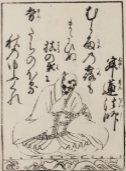 寂蓮法師
むら雨の露も
まだひぬ
槙の葉に
霧たちのぼる
秋の夕ぐれ